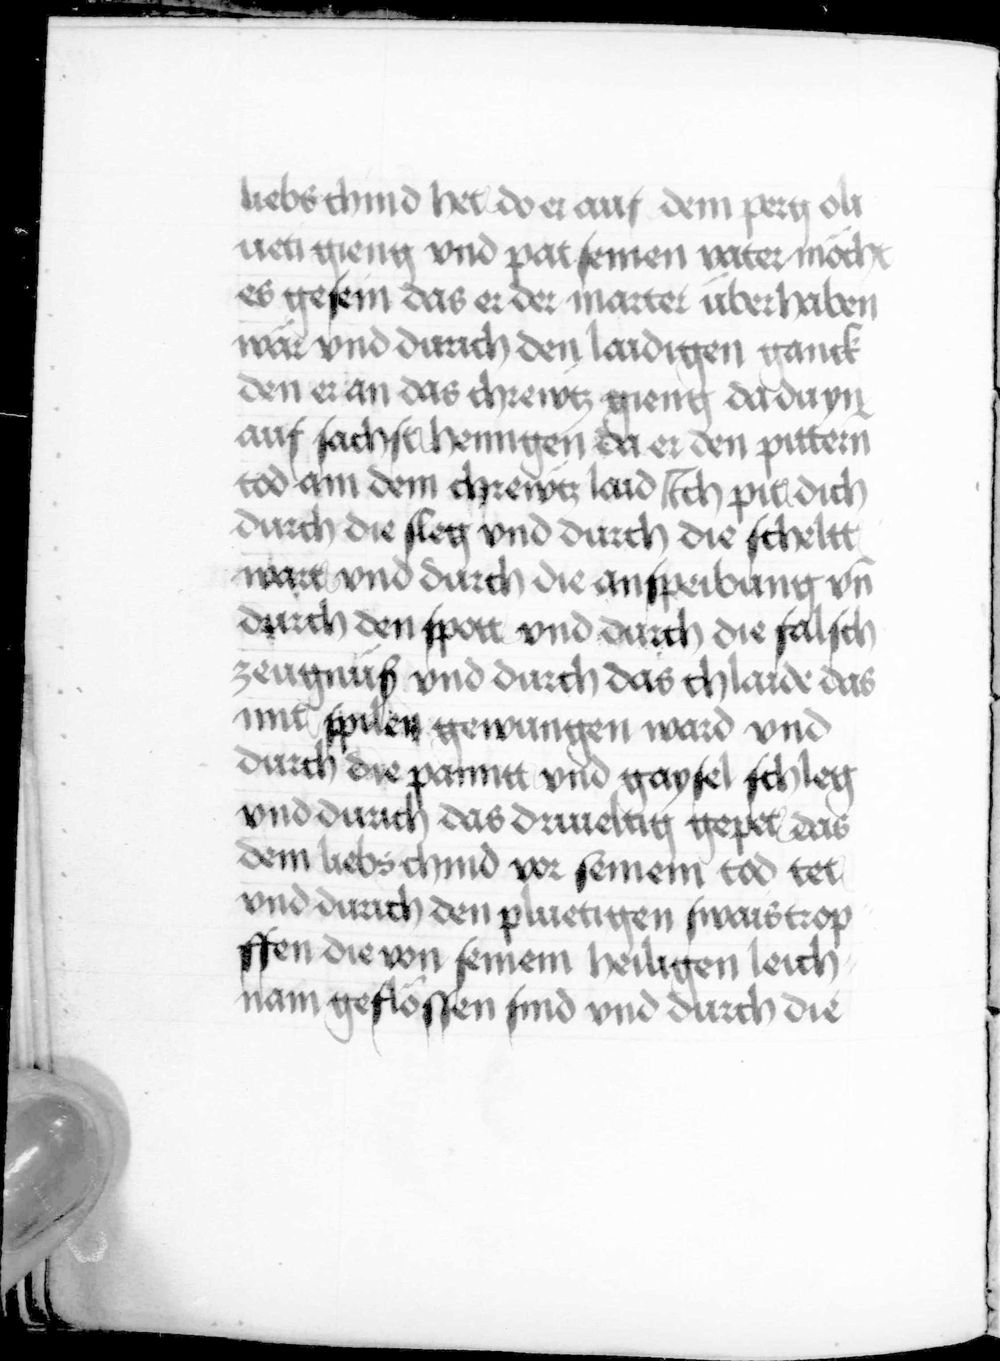 liebs chind het do er auf dem perg oli
ueti gieng vnd pat seinen vater möcht
es gesein das er der marter überhaben
wär vnd durich den laidigen ganck
den er an das chrewtz gieng da du yn
auf sachst henngen da er den pittern
tod am dem chrewtz laid Ich pit dich
durch die sleg vnd durch die scheltt
wart vnd durch die anspeibung vn̄
durch den spott vnd durch die falsch
zeugnüß vnd durch das chlaide das
mit spilen gewungen ward vnd
durch die panntt vnd gaysel schleg
vnd durich das driueltig gepet das
dem liebs chind vor seinem tod tet
vnd durich den pluetigen swaistrop
ffen die von seinem heiligen leich
nam geflössen sind vnd durch die